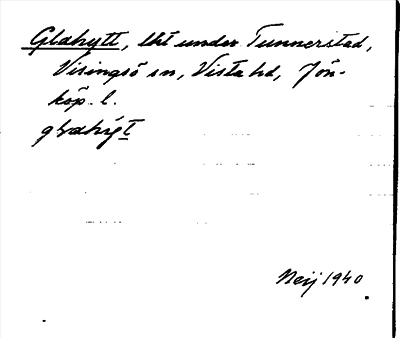 Glahytt, lht under Tunnerstad,
Visingsö sn, Vista hd, Jön-
köp. l.
glahýt
Neij 1940